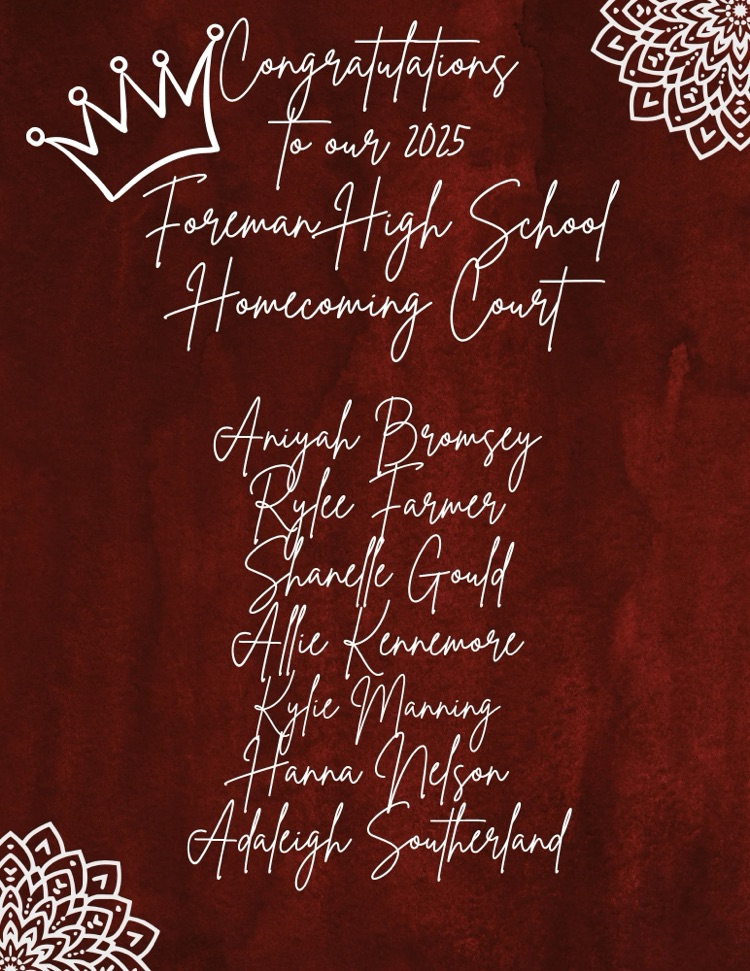 Congratulations
to our 2025
Foreman High School
Homecoming Court
Aniyah Bromsey
Rylee Farmer
Shanelle Gould
Allie Kennemore
Kylie Manning
Hanna Nelson
Adaleigh Southerland